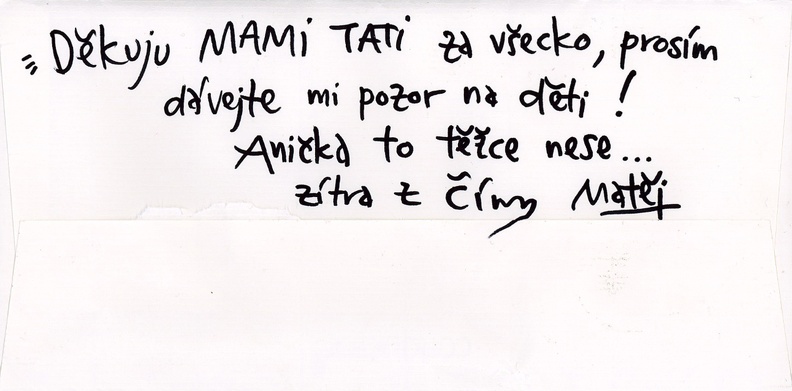 Děkuju MAMi TATi za všecko, prosím
dávejte mi pozor na děti!
Anička to těžce nese...
zítra z Číny Matěj